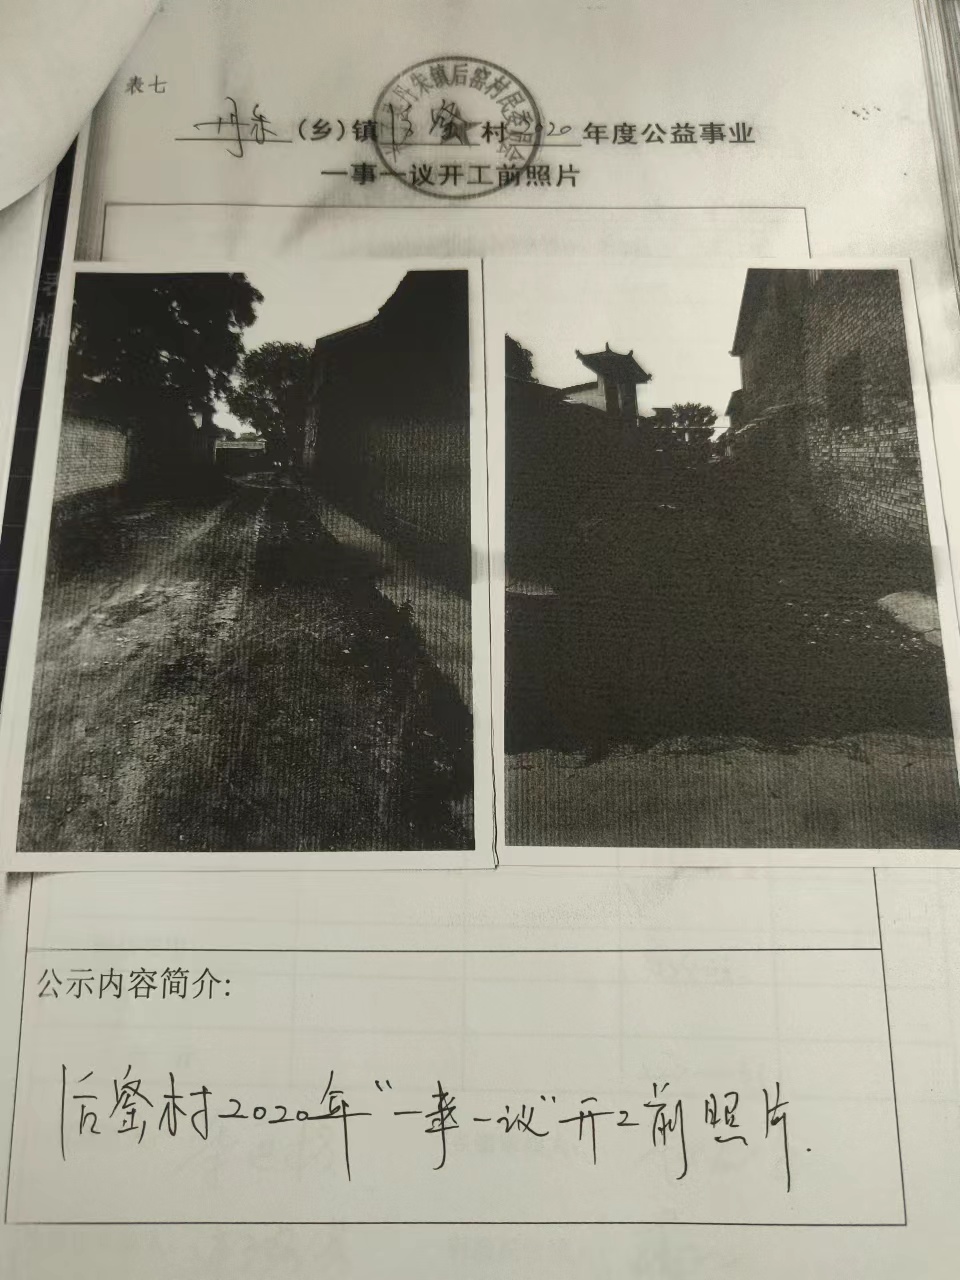 表七
丹朱(乡)镇后窑村2020年度公益事业
一事一议开工前照片
朱镇后窑村民委员会
公示内容简介:
后窑村2020年“一事一议”开工前照片.